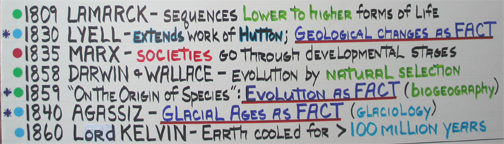 1809 LAMARCK - SEQUENCES LOWER TO HIGHER FORMS OF LIFE
* 1830 LYELL - EXTENDS WORK OF HUTTON; GEOLOGICAL CHANGES AS FACT
1835 MARX - SOCIETIES GO THROUGH DEVELOPMENTAL STAGES
1858 DARWIN & WALLACE - EVOLUTION BY NATURAL SELECTION
* 1859 "ON THE ORIGIN OF SPECIES": EVOLUTION AS FACT (BIOGEOGRAPHY)
* 1840 AGASSIZ - GLACIAL AGES AS FACT (GLACIOLOGY)
1860 LORD KELVIN - EARTH COOLED FOR > 100 MILLION YEARS